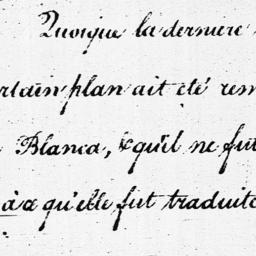 Quoique la derniere
rtain plan ait eté rem
Blanca, & qu'il ne fut
à ce qu'elle fut traduite